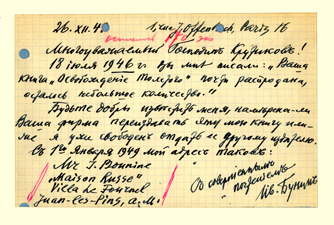 26. XII. 48 1, rue J. Offenbach, Paris 16
Многоуважаемый Господин Крутиков!
18 июля 1946 г. Вы мне писали: "Ваша
книга "Освобождение Толстого" почти распродана,
осталось небольшое количество."
Будьте добры известить меня, намерена-ли
Ваша фирма переиздавать эту мою книгу или
же я уже свободен отдать ее другому издателю.
С 1го Января 1949 мой адрес таков:
Mr I. Bounine
"Maison Russe"
Villa de
Juan-les-Pins, a. M.
С совершенным
почтением
Ив. Бунин